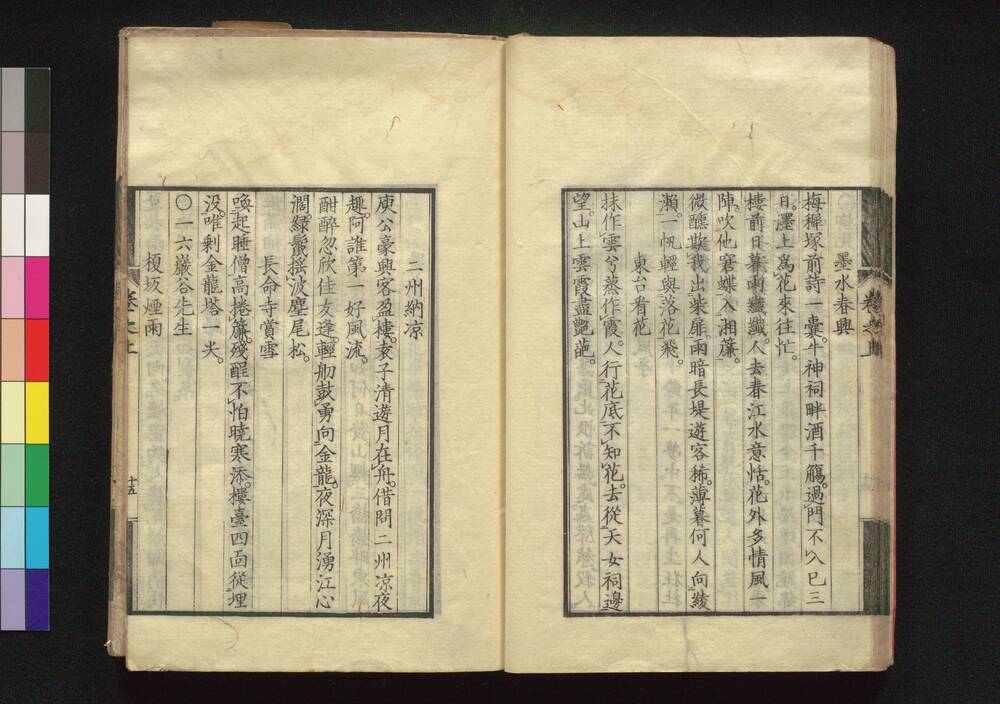 墨水春興
梅穉塚前詩一囊。牛神祠畔酒千觴。過門不入已三
日。墨上爲花來往忙。
樓前日暮雨纖纖。人去春江水意恬。花外多情風一
陣。吹他窘蝶入湘簾。
微醺散我出柴扉。雨暗長堤遊客稀。薄暮何人向綾
瀨。一帆輕與落花飛。
東台看花
抹作雲兮蒸作霞。人行花底不知花。去從天女祠邊
望。山上雲霞盡艷葩。
二州納凉
庾公豪興客盈樓。袁子清遊月在舟。借問二州凉夜
趣。阿誰第一好風流。
酣醉忽欣佳友逢。輕舠鼓勇向金龍。夜深月湧江心
濶。綠鬣搖波麈尾松。
長命寺賞雪
喚起睡僧高捲簾。殘酲不怕曉寒添。樓臺四面從埋
沒。唯剩金龍塔一尖。
〇一六巖谷先生
榎坂煙雨
卷之上
十五